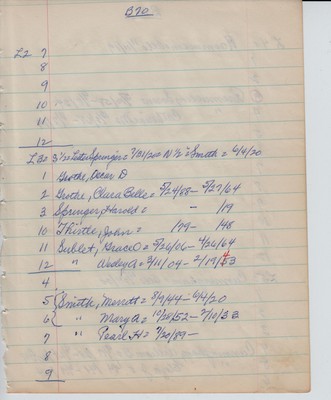 B70
L2 7
8
9
10
11
12
L B70 3 1/2 Letta Springer = 7/31/20 N 1/2 = Smith = 6/4/20
1 Grothe, Oscar D
2 Grothe, Clara Belle = 5/24/88 - 5/27/64
3 Springer, Harold = - /19
10 Thistle, John = /79 - /48
11 Sublet, Grace O = 5/26/06 - 4/26/64
12 " Wesley A = 3/11/04 - 2/19/53
4
5 Smith, Merrott = 8/9/44 - 6/4/20
6 " Mary A = 10/28/52 - 2/10/38
7 " Pearl H = 7/20/89 -
8
9